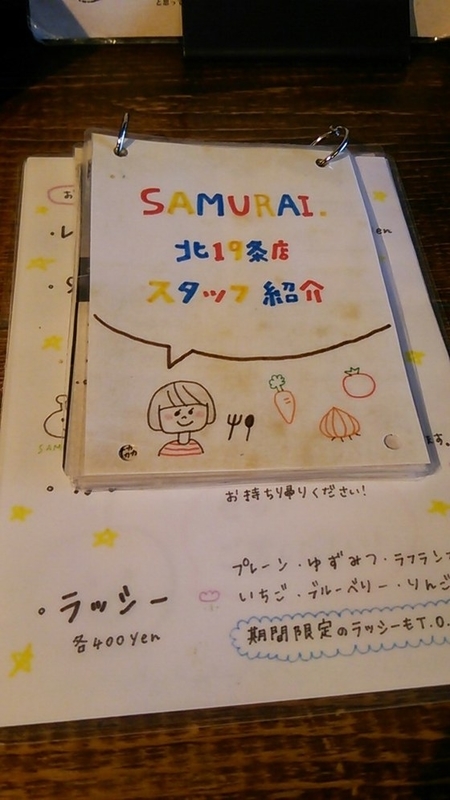 SAMURAI.
北19条店
スタッフ紹介
お
en
SAM
ます。
お持ち帰りください!
・ラッシー
各400yen
プレーン・ゆずみつ・ラフランス
いちご・ブルーベリー・りんご
期間限定のラッシーもT.O.